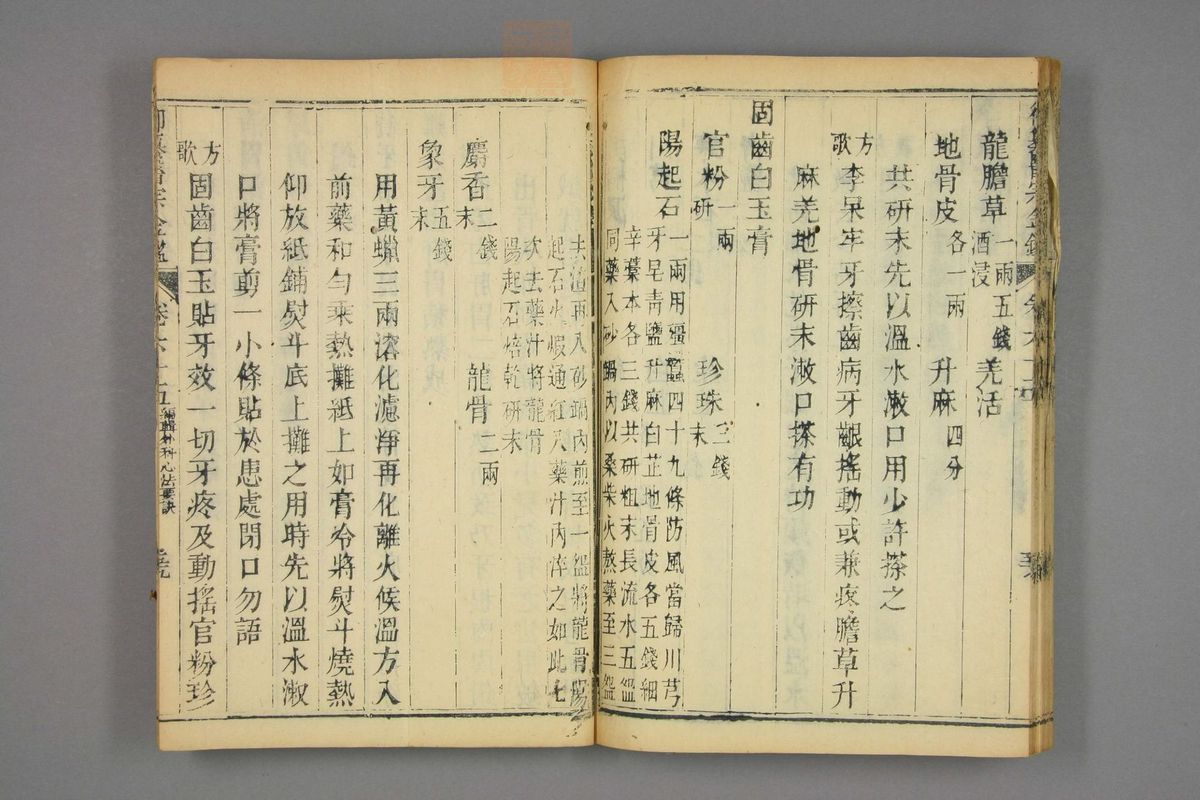 龍膽草一兩五錢酒浸 羌活
地骨皮各一兩 升麻四分
共研末先以溫水漱口用少許搽之
方歌 李杲牢牙擦齒病牙齦搖動或兼疼膽草升
麻羌地骨研末漱口搽有功
固齒白玉膏
官粉一兩研 珍珠三錢末
陽起石一兩用殭蠶四十九條防風當歸川芎
牙皂青鹽升麻白芷地骨皮各五錢細
辛藁本各三錢共研粗末長流水五鍾
同藥入砂鍋內以桑柴火熬藥至三鍾
去渣再入砂鍋內煎至一鍾將龍骨陽
起石火煆通紅入藥汁內淬之如此七
次去藥汁將龍骨
陽起石焙乾研末
麝香二錢末 龍骨二兩
象牙五錢末
用黃蠟三兩溶化濾淨再化離火候溫方入
前藥和勻乘熱攤紙上如膏冷將熨斗燒熱
仰放紙鋪熨斗底上攤之用時先以溫水漱
口將膏剪一小條貼於患處閉口勿語
方歌 固齒白玉貼牙效一切牙疼及動搖官粉珍
御纂醫宗金鑑 卷六十五 編輯外科心法要訣